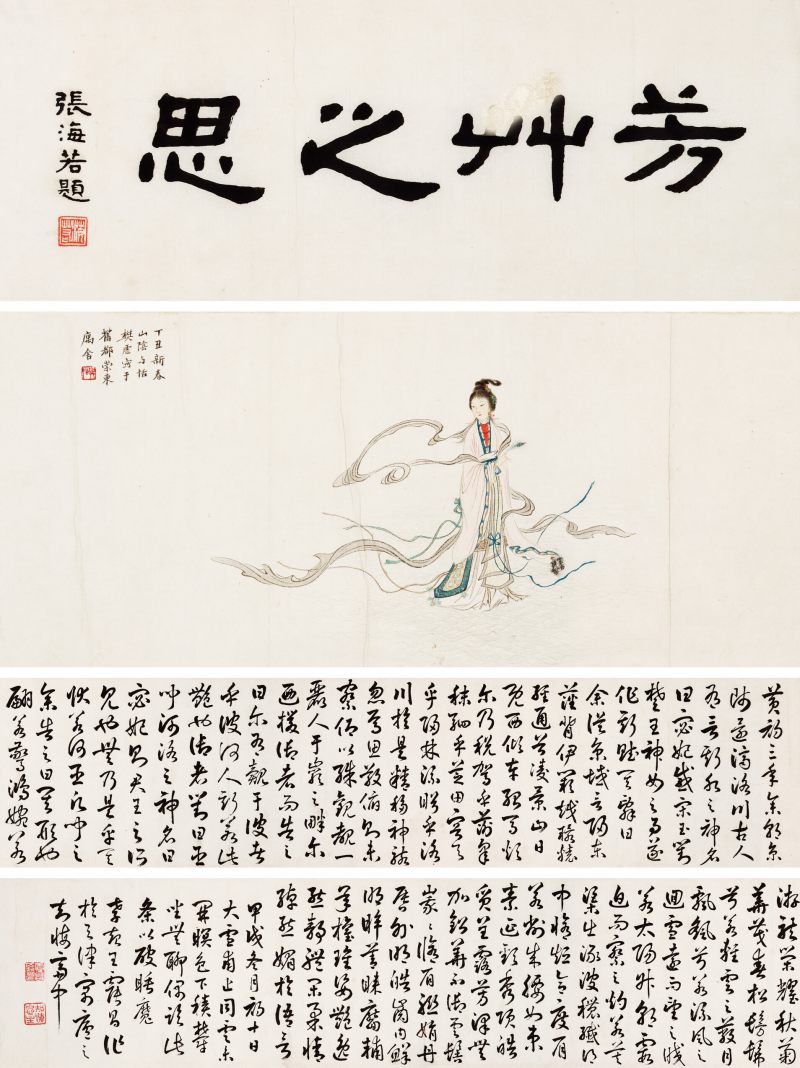 芳艸之思
張海若題
丁丑新春
山陰与恬
寫于
舊都榮東
廡舍
黄初三年余朝京
師還濟洛川古人
有言斯水之神名
曰宓妃感宋玉對
楚王神女之事遂
作斯賦其辭曰
余從京域言歸東
藩背伊闕越轘轅
經通谷陵景山日
既西傾車殆馬煩
尔乃税駕乎蘅皋
秣駟乎芝田容與
乎陽林流眄乎洛
川於是精移神駭
忽焉思散俯則未
察仰以殊觀覩一
麗人于巖之畔尔
迺援御者而告之
曰尔有覿于彼者
乎彼何人斯若此
艷也御者對曰臣
聞河洛之神名曰
宓妃則君王之所
見也無乃是乎其
状若何臣願聞之
余告之曰其形也
翩若驚鴻婉若
游龍榮耀秋菊
華茂春松髣髴
兮若輕雲之蔽月
飄飖兮若流風之
迴雪遠而望之皎
若太陽升朝霞
迫而察之灼若芙
渠出淥波穠纖得
中修短合度肩
若削成腰如束
素延頸秀項皓
質呈露芳澤無
加鉛華不御雲髻
峩峩修眉聯娟丹
唇外朗皓齒内鮮
明眸善睞靨輔
承權瓌姿艷逸
儀靜體閑柔情
綽態媚於語言
甲戌冬月初十日
大雪甫止同雲未
開暝色下積
坐無聊偶臨此
卷以破睡魔
於天津寓廬之
知悔齋中